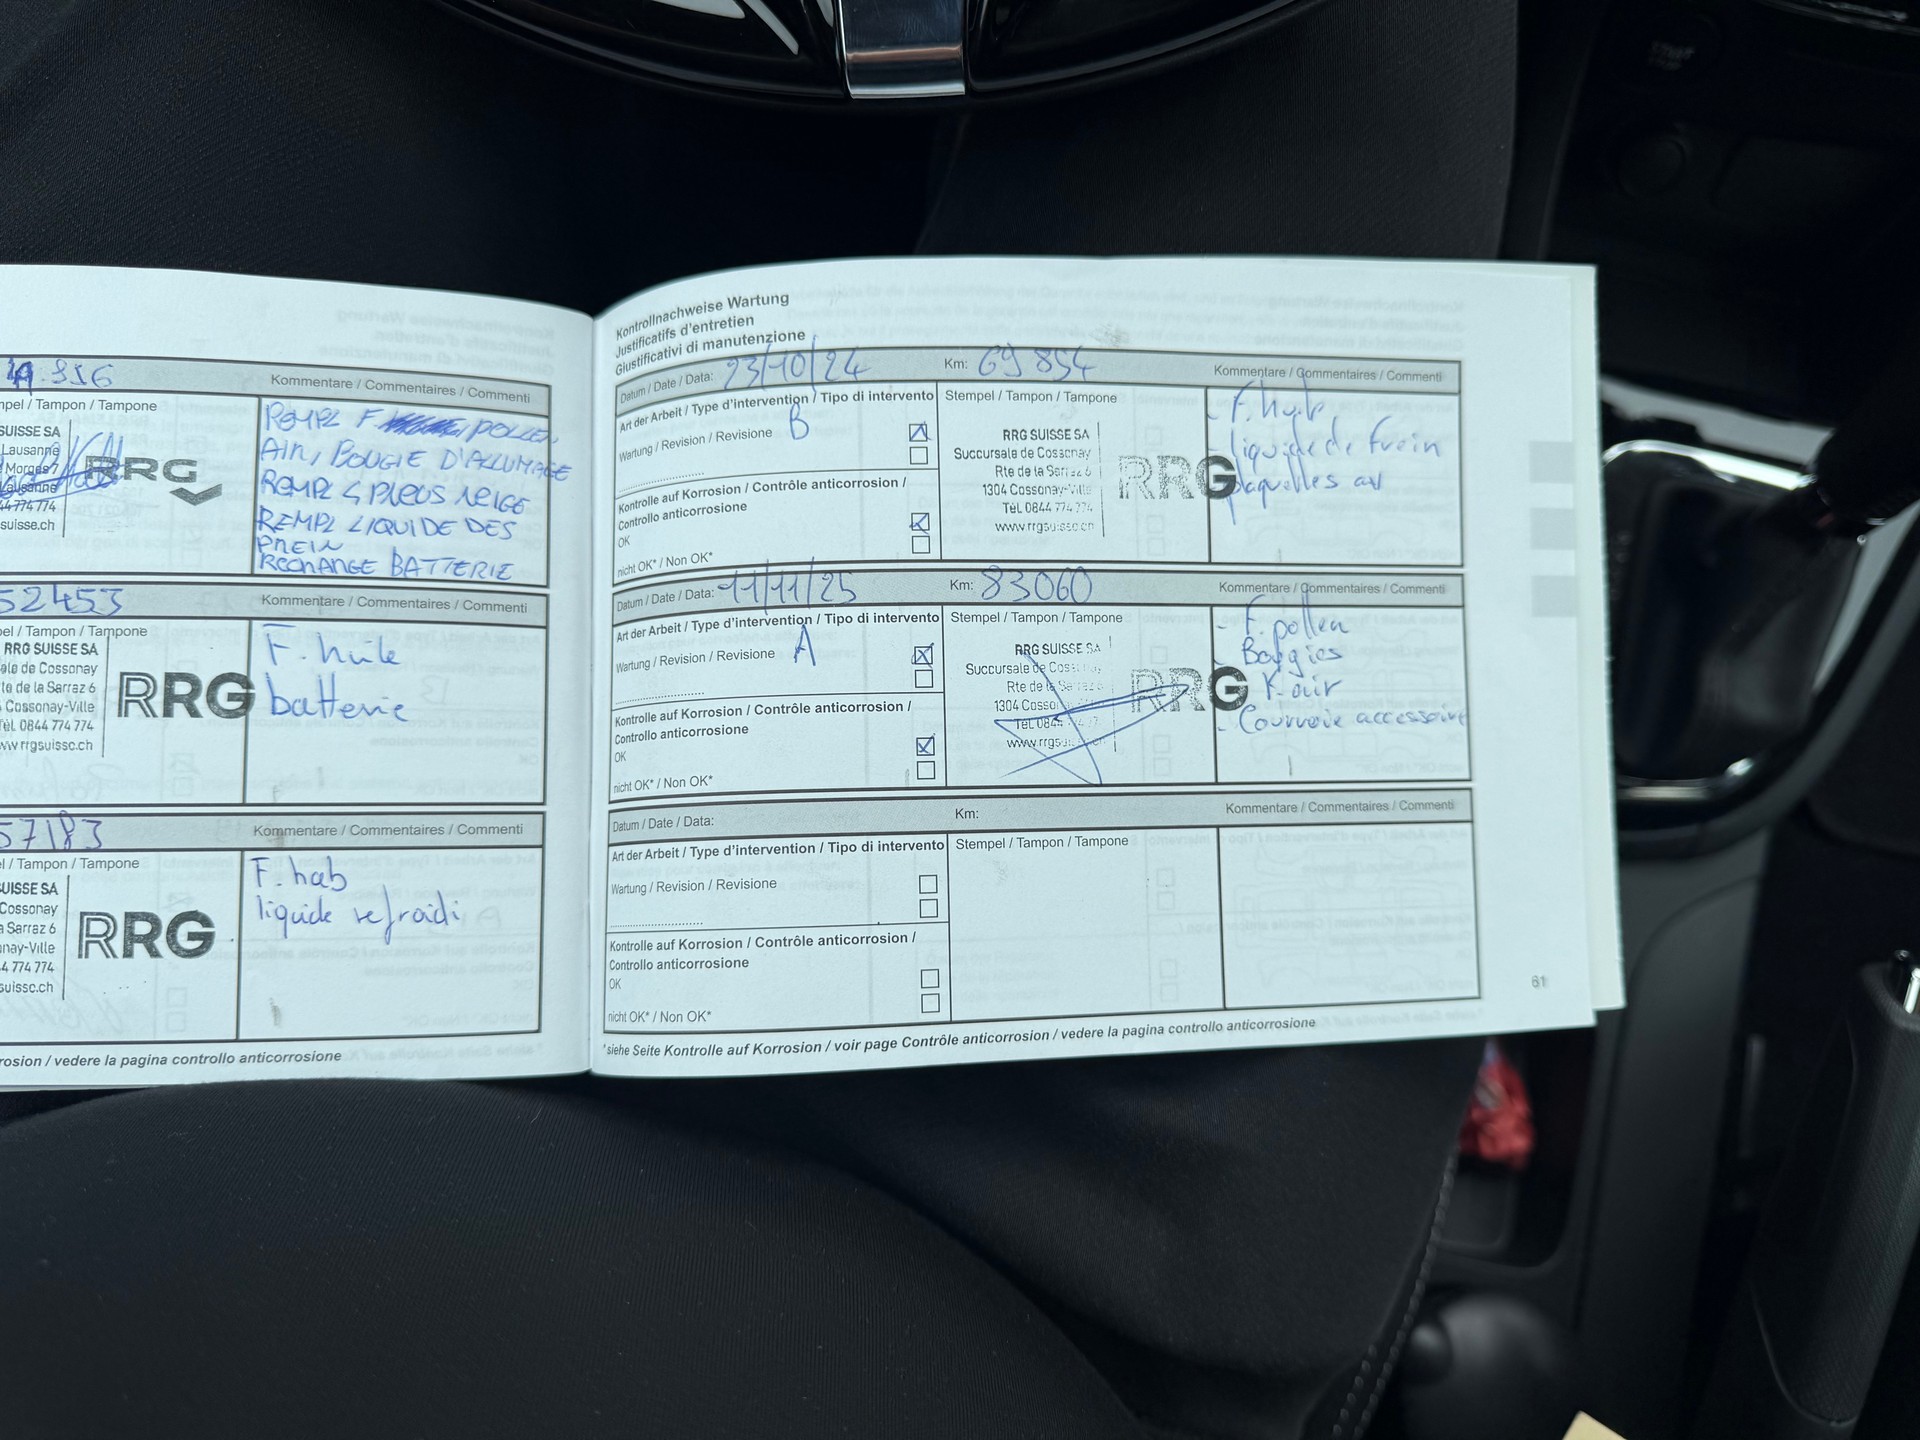 .916
Kommentare / Commentaires / Commenti
mpel / Tampon / Tampone
SUISSE SA
Lausanne
Morges 7
Lausanne
44 774 774
suisse.ch
RRG
REMPL F. POLLEN,
AIR, BOUGIE D'ALLUMAGE
REMPL 4 PNEUS NEIGE
REMPL LIQUIDE DES
FREIN
RECHANGE BATTERIE
52453
Kommentare / Commentaires / Commenti
pel / Tampon / Tampone
RRG SUISSE SA
ale de Cossonay
te de la Sarraz 6
Cossonay-Ville
Tél. 0844 774 774
ww.rrgsuisse.ch
RRG
F. huile
batterie
57183
Kommentare / Commentaires / Commenti
el / Tampon / Tampone
SUISSE SA
Cossonay
a Sarraz 6
nay-Ville
4 774 774
suisse.ch
RRG
F. hab
liquide refroidi
rosion / vedere la pagina controllo anticorrosione
Kontrollnachweise Wartung
Justificatifs d'entretien
Giustificativi di manutenzione
Datum / Date / Data: 23/10/24
Km: 69 854
Kommentare / Commentaires / Commenti
Art der Arbeit / Type d'intervention / Tipo di intervento
Wartung / Revision / Revisione B
Kontrolle auf Korrosion / Contrôle anticorrosion /
Controllo anticorrosione
OK
nicht OK* / Non OK*
Stempel / Tampon / Tampone
RRG SUISSE SA
Succursale de Cossonay
Rte de la Sarraz 6
1304 Cossonay-Ville
Tél. 0844 774 774
www.rrgsuisse.ch
RRG
- F. huile
- liquide de frein
- plaquettes av
Datum / Date / Data: 11/11/25
Km: 83060
Kommentare / Commentaires / Commenti
Art der Arbeit / Type d'intervention / Tipo di intervento
Wartung / Revision / Revisione A
Kontrolle auf Korrosion / Contrôle anticorrosion /
Controllo anticorrosione
OK
nicht OK* / Non OK*
Stempel / Tampon / Tampone
RRG SUISSE SA
Succursale de Cossonay
Rte de la Sarraz 6
1304 Cossonay
Tél. 0844 774 77
www.rrgsuisse.ch
RRG
- F. pollen
- Bougies
- F. air
- Courroie accessoire
Datum / Date / Data:
Km:
Kommentare / Commentaires / Commenti
Art der Arbeit / Type d'intervention / Tipo di intervento
Wartung / Revision / Revisione
Kontrolle auf Korrosion / Contrôle anticorrosion /
Controllo anticorrosione
OK
nicht OK* / Non OK*
Stempel / Tampon / Tampone
*siehe Seite Kontrolle auf Korrosion / voir page Contrôle anticorrosion / vedere la pagina controllo anticorrosione
61